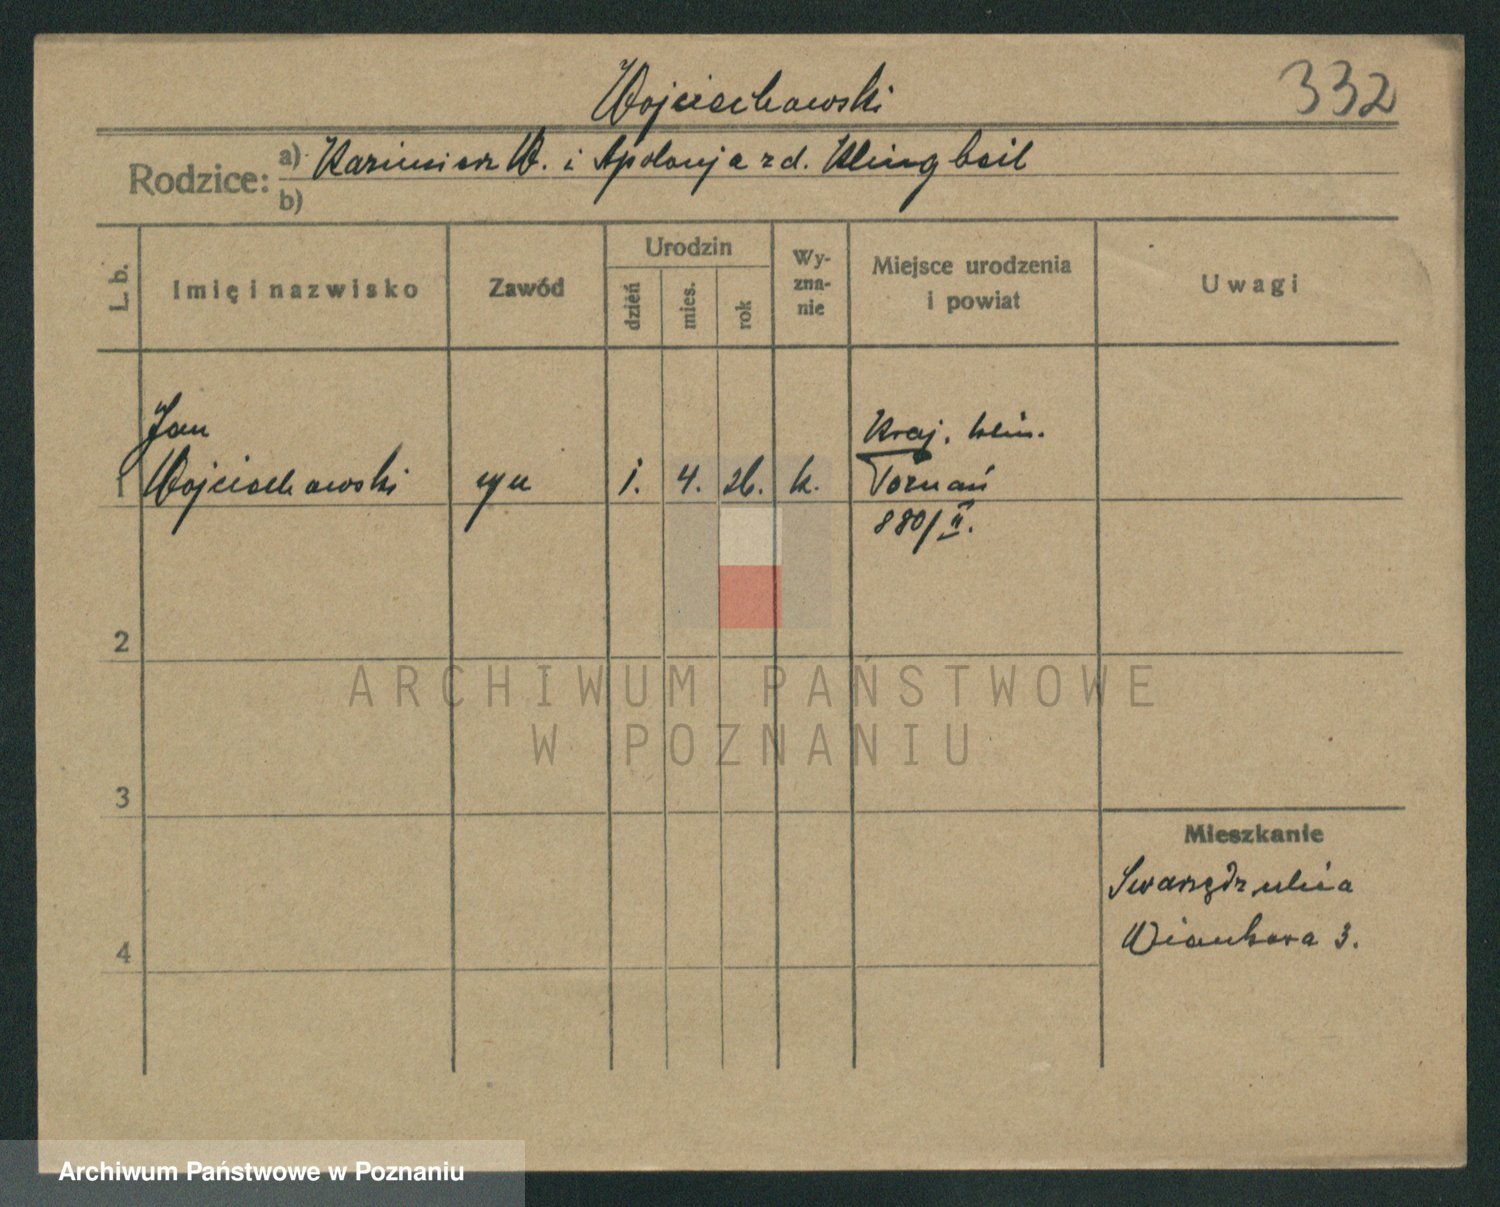 332
Wojciechowski
Rodzice:
a) Kazimierz W. i Apolonja z d. Klingbeil
b)
L. b.
Imię i nazwisko
Zawód
Urodzin
dzień
mies.
rok
Wy-
zna-
nie
Miejsce urodzenia
i powiat
Uwagi
Jan
1 Wojciechowski
syn
1. 4. 26. k.
Poznań
880/II.
2
3
4
Mieszkanie
Swarzędz, ulica
Wiankowa 3.
ARCHIWUM PAŃSTWOWE
W POZNANIU
Archiwum Państwowe w Poznaniu